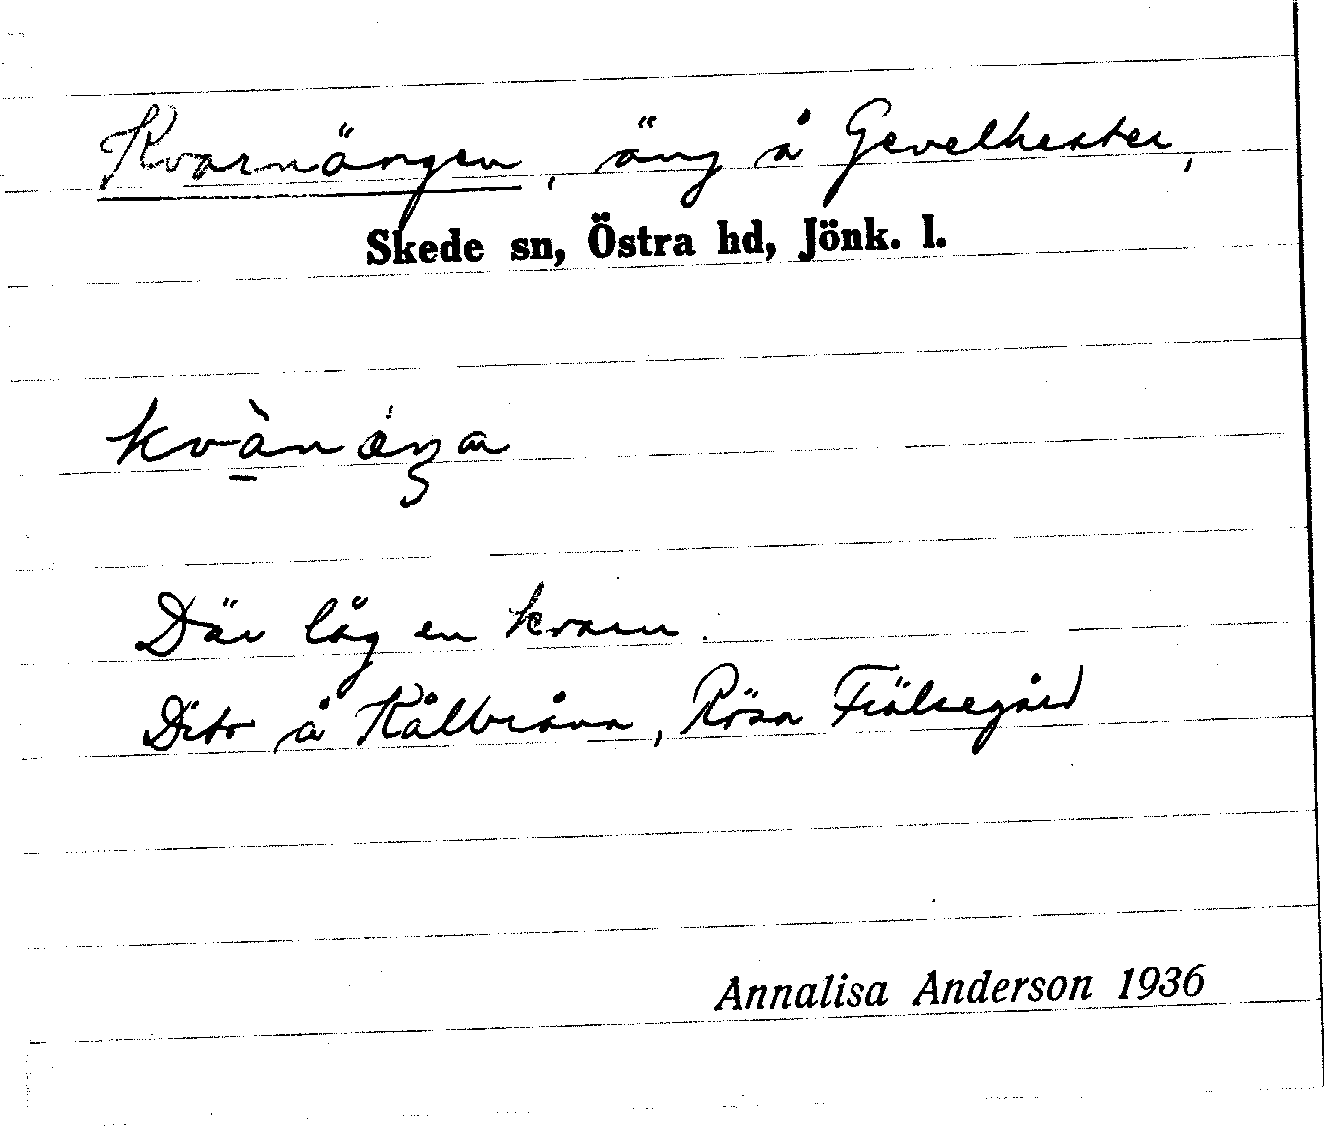 Kvarnängen, äng å Gevelhester,
Skede sn, Östra hd, Jönk. l.
Där låg en kvarn.
Dito å Kålbråna, Rösa Frälsegård
Annalisa Anderson 1936